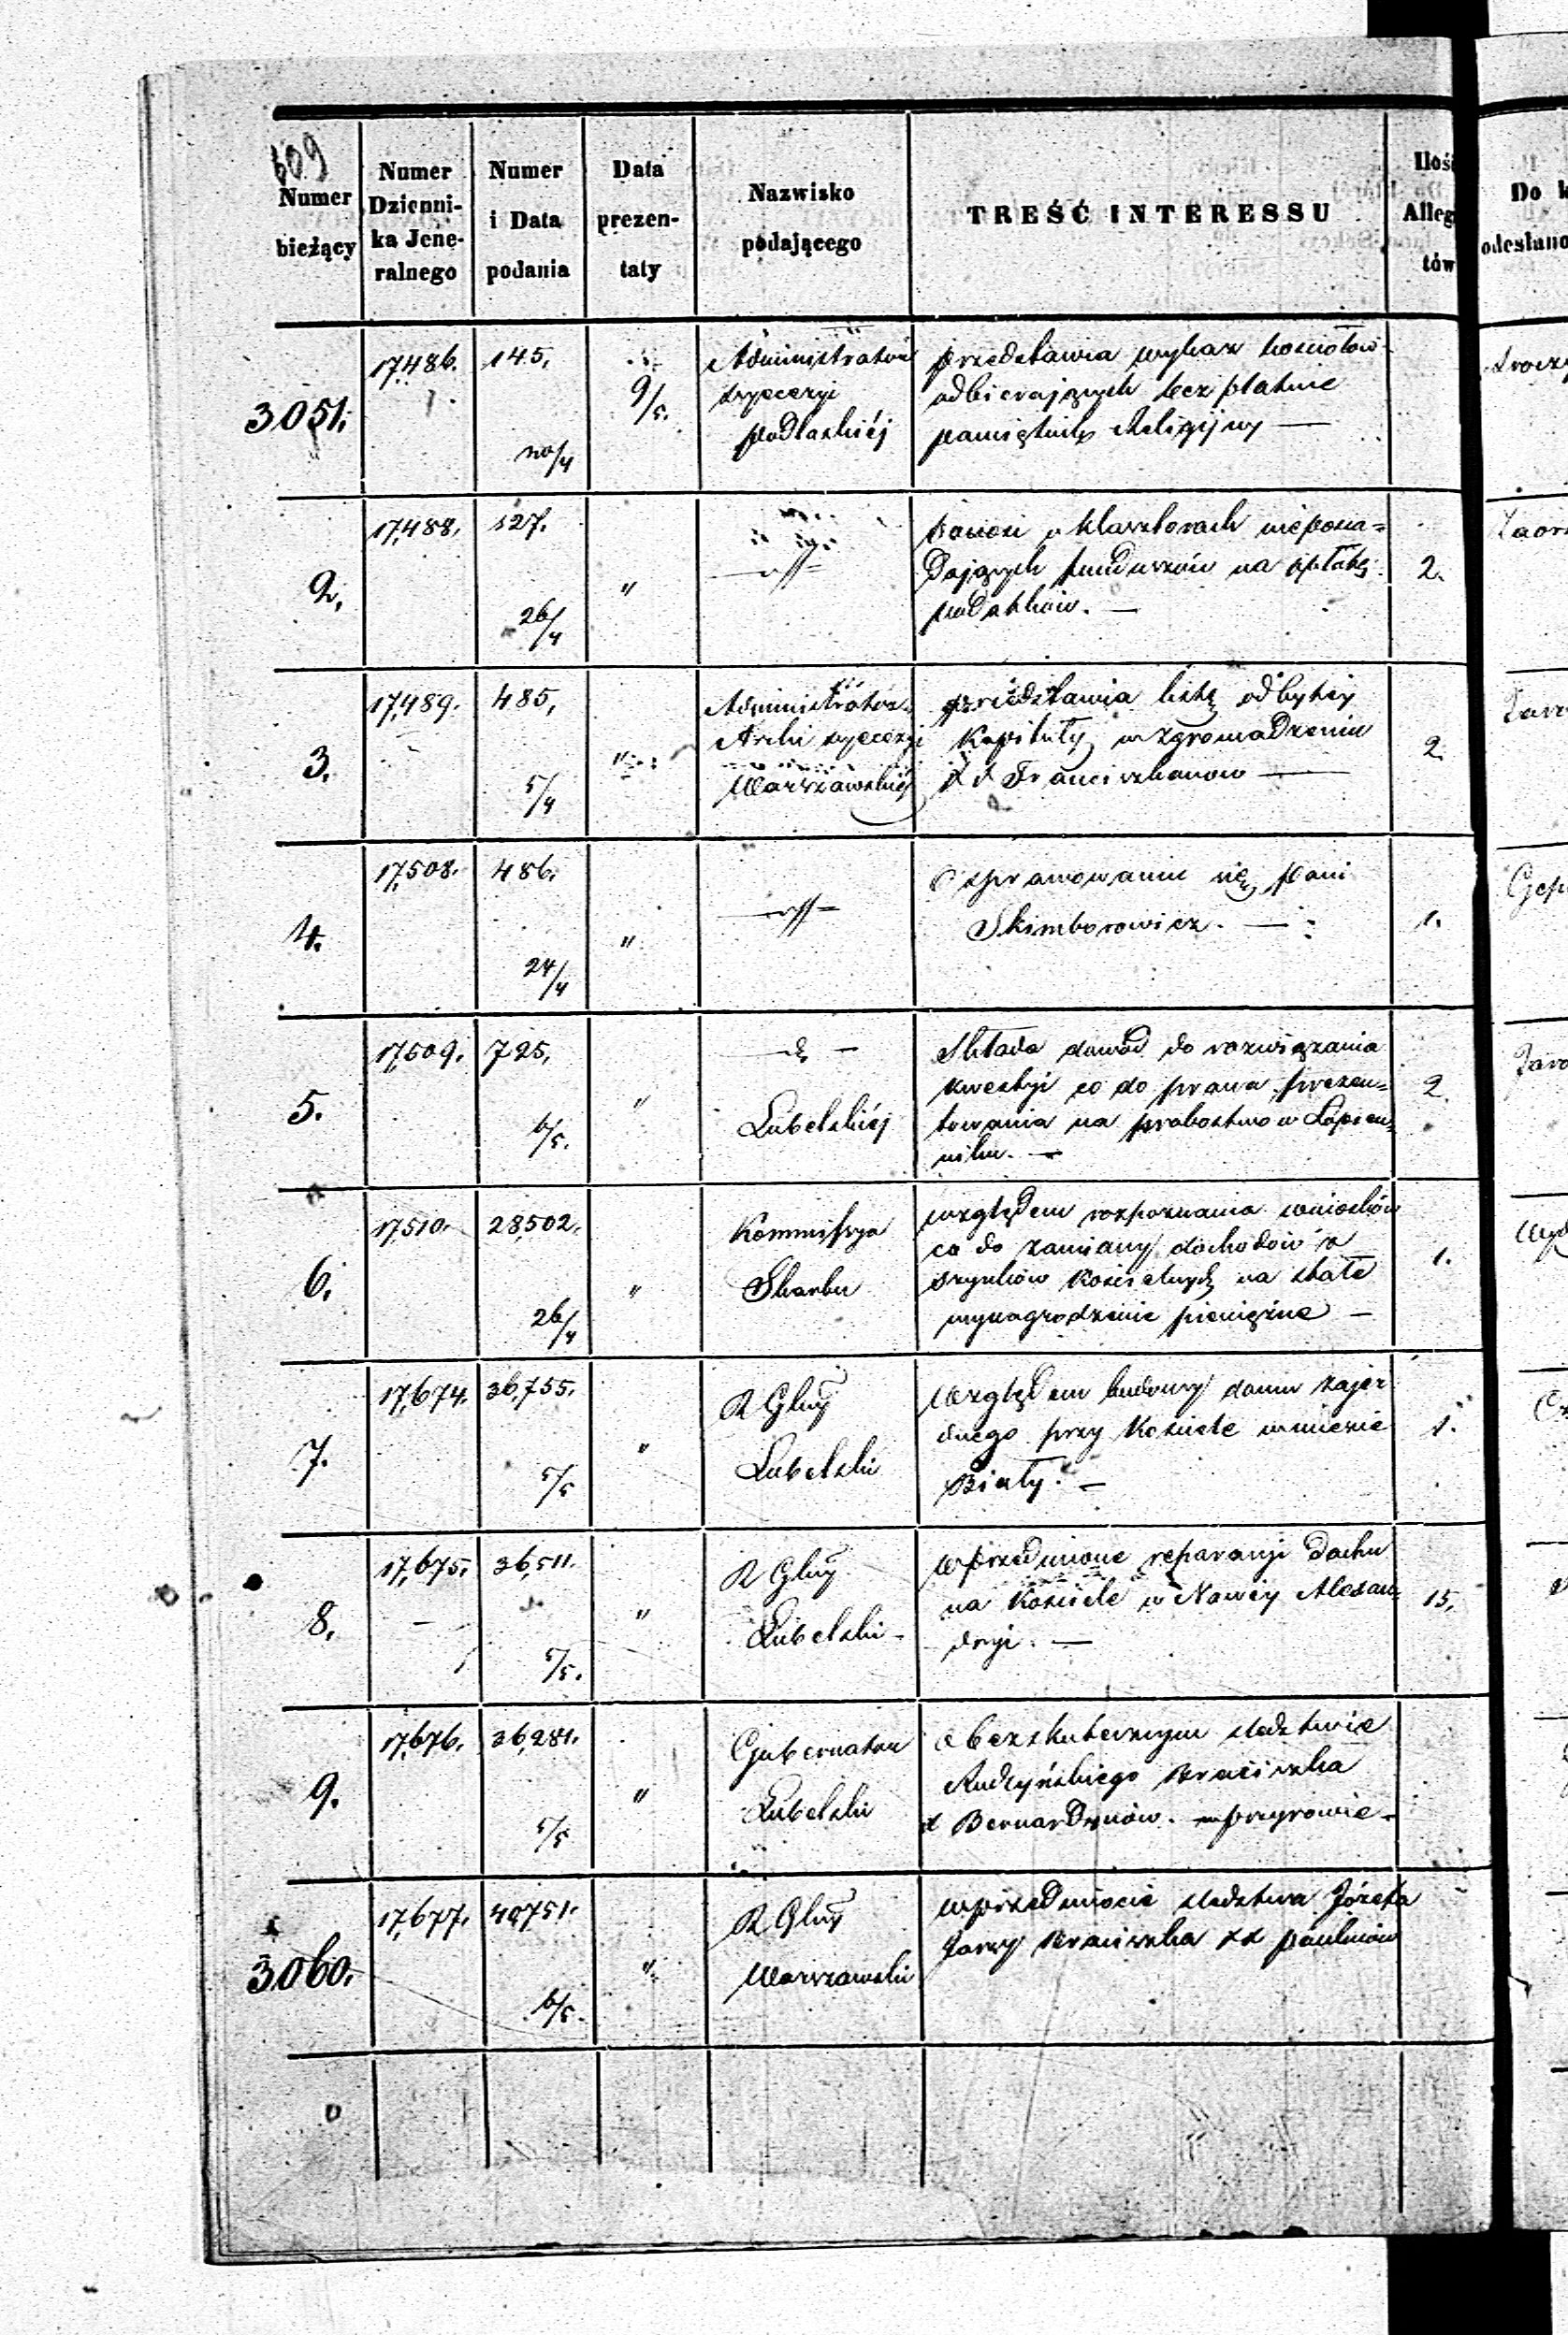 609
Numer
bieżący
Numer
Dzienni-
ka Jene-
ralnego
Numer
i Data
podania
Data
prezen-
taty
Nazwisko
podającego
TREŚĆ INTERESSU
Ilość
Alleg
tów
Do k
odesłano
3051. 17,486. 145, 20/4 9/5. Administrator
dyecezyi
podlaskiéj
przedstawia wykaz kościołów
odbierających bezpłatnie
pamiętnik Religijny —
2. 17,488. 127. 26/4 "
donosi o klasztorach niéposia=
dających funduszów na opłatę
podatków. — 2.
3. 17,489. 485, 5/4 " Administrator
Archi dyecezyi
Warszawskiéj
przedstawia listę odbytéj
Kapituły w Zgromadzeniu
XX Franciszkanow — 2.
4. 17,508. 486. 24/4 "
O sprawowaniu się pani
Skimborowicz. — 1.
5. 17,509. 725, 6/5. " — d° —
Lubelskiéj
Składa dowód do rozwiązania
kwestyi co do prawa prezen=
towania na probostwo w Łopien=
niku. — 2.
6. 17,510. 28,502. 26/4 " Kommissya
Skarbu
względem rozpoznania wniosków
co do zamiany dochodów z
szynków Kościelnych na stałe
wynagrodzenie pieniężne — 1.
7. 17,674. 36,755. 5/5 " R Glny
Lubelski
Względem budowy domu zajez
dnego przy Kościele w mieście
Biały. — 1.
8. 17,675. 36,511. 5/5. " R Glny
Lubelski —
w przedmiocie reparacyi dachu
na Kościele w Nowéy Alexan=
dryi. — 15.
9. 17,676. 36,281. 5/5 " Gubernator
Lubelski
o bezskutecznym śledztwie
Rudzyńskiego Braciszka
x Bernardynów. w przyrowie —
3060. 17,677. 40,751. 6/5. " R Glny
Warszawski
w przedmiocie śledztwa Józefa
Jarzy Braciszka XX paulinów